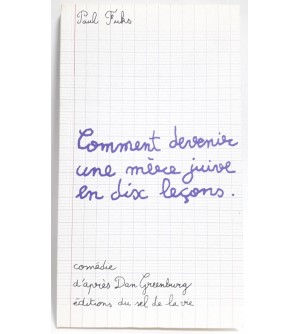 Paul Fuks
Comment devenir
une mère juive
en dix leçons.
comédie
d'après Dan Greenburg
éditions du sel de la vie